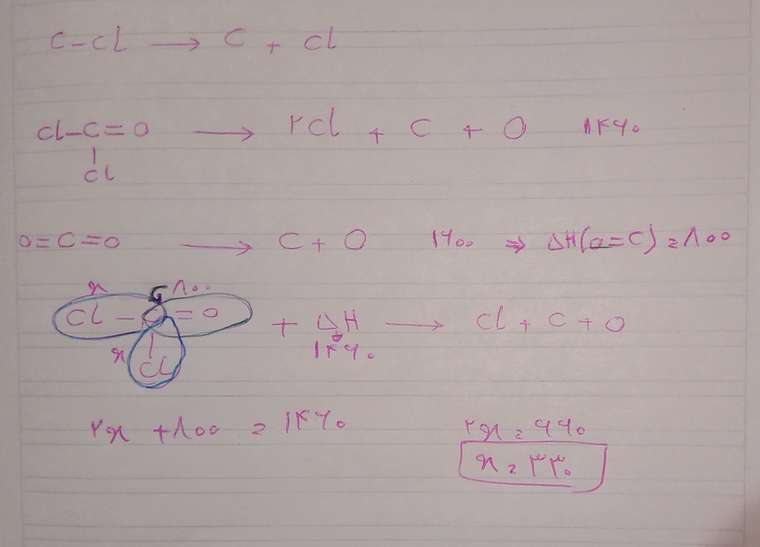 C-Cl → C + Cl
Cl-C=O → ۲Cl + C + O ۱۴۶۰
Cl
O=C=O → C + O ۱۶۰۰ ⇒ ΔH(O=C) = ۸۰۰
x ۸۰۰
Cl-C=O + ΔH → Cl + C + O
x Cl ۱۴۶۰
۲x + ۸۰۰ = ۱۴۶۰ ۲x = ۶۶۰
x = ۳۳۰